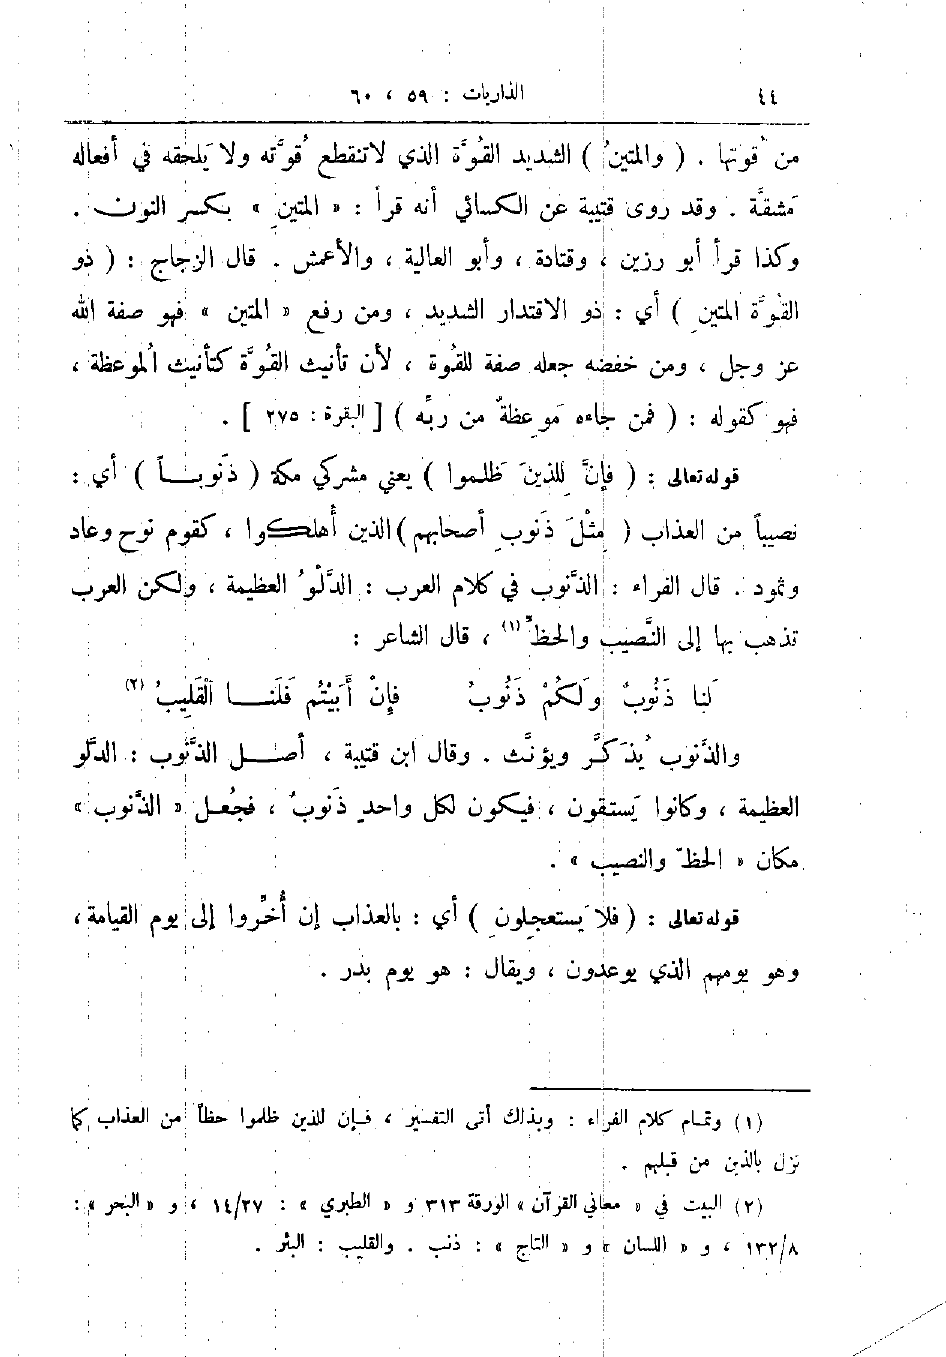 ٤٤ الذاريات : ٥٩ ، ٦٠
من قُوتها . ( والمتينُ ) الشديد القُوَّة الذي لاتنقطع قُوَّته ولا يَلحقه في أفعاله
مَشقَّة . وقد روى قتيبة عن الكسائي أنه قرأ : « المتينِ » بكسر النون .
وكذا قرأ أبو رزين ، وقتادة ، وأبو العالية ، والأعمش . قال الزجاج : ( ذو
القُوَّة المتينِ ) أي : ذو الاقتدار الشديد ، ومن رفع « المتين » فهو صفة الله
عز وجل ، ومن خفضه جعله صفة للقُوة ، لأن تأنيث القُوَّة كتأنيث المُوعظة ،
فهو كقوله : ( فمن جاءه مَوعِظةٌ من ربِّه ) [ البقرة : ٢٧٥ ] .
قوله تعالى : ( فإنَّ لِلذينَ ظَلموا ) يعني مشركي مكة ( ذَنوباً ) أي :
نصيباً من العذاب ( مِثْلَ ذَنوبِ أصحابهم ) الذين أُهلكوا ، كقوم نوح وعاد
وثمود . قال الفراء : الذَّنوب في كلام العرب : الدَّلْوُ العظيمة ، ولكن العرب
تذهب بها إلى النَّصيب والحظّ (١) ، قال الشاعر :
لَنا ذَنُوبٌ ولَكُمْ ذَنُوبُ فإنْ أَبَيْتُم فَلَنا القَلِيبُ (٢)
والذَّنوب يُذكَّر ويؤنَّث . وقال ابن قتيبة ، أصل الذَّنوب : الدَّلو
العظيمة ، وكانوا يَستقون ، فيكون لكل واحدٍ ذَنوبٌ ، فجُعل « الذَّنوب »
مكان « الحظّ والنصيب » .
قوله تعالى : ( فلا يَستعجلونِ ) أي : بالعذاب إن أُخِّروا إلى يوم القيامة ،
وهو يومهم الذي يوعدون ، ويقال : هو يوم بدر .
(١) وتمام كلام الفراء : وبذلك أتى التفسير ، فإن للذين ظلموا حظاً من العذاب كما
نزل بالذين من قبلهم .
(٢) البيت في « معاني القرآن » الورقة ٣١٣ و « الطبري » : ١٤/٢٧ ، و « البحر » :
١٣٢/٨ ، و « اللسان » و « التاج » : ذنب . والقليب : البئر .